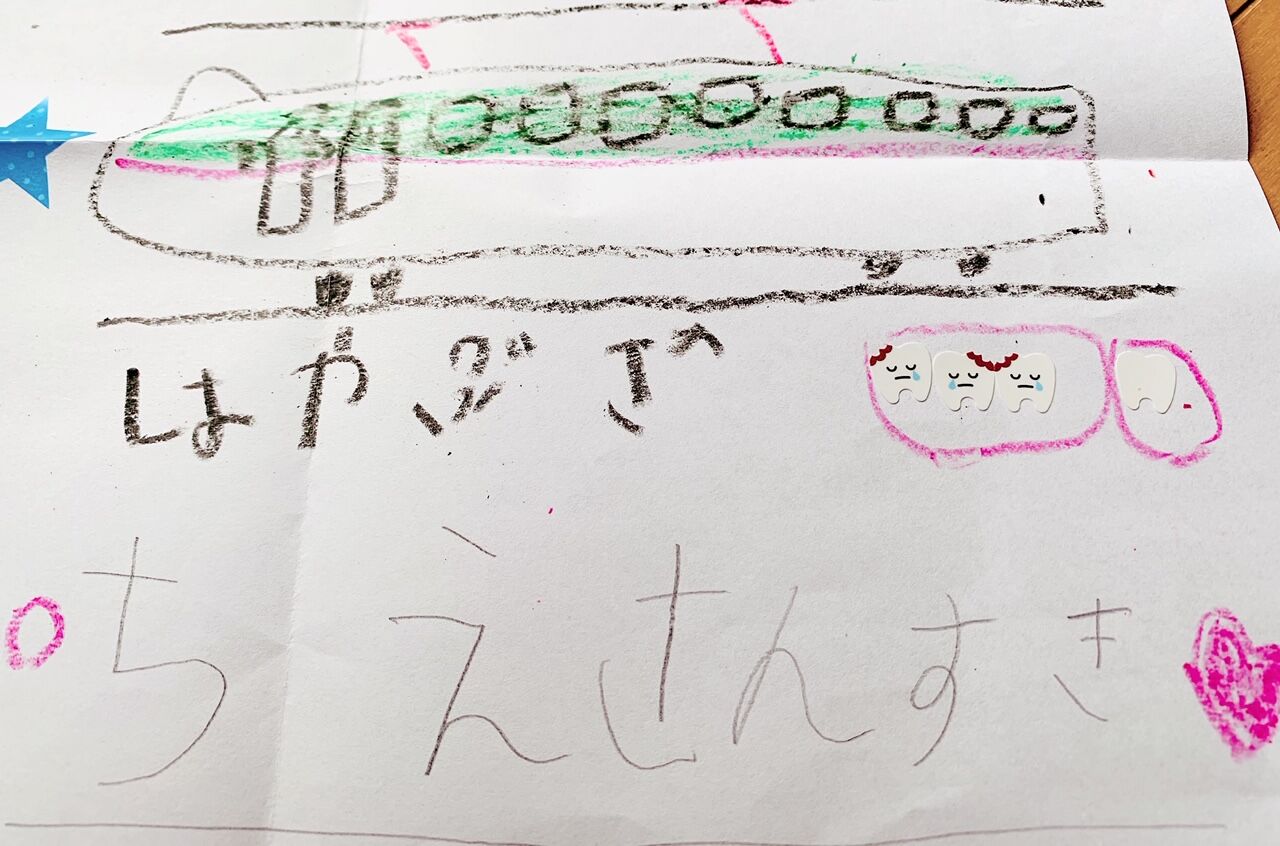 はやぶさ
ちえさんすき